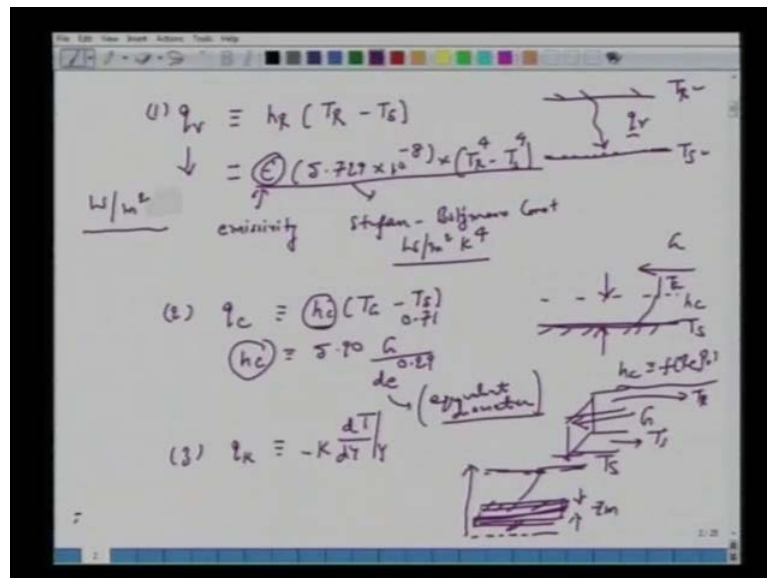 File Edit View Insert Actions Tools Help
(1) qr ≡ hR (TR - TS)
TR -
qr
↓ = ϵ (5.729 × 10^-8) × (TR^4 - Ts^4)
TS -
W/m²
emissivity
Stefan - Boltzmann Const
W/m² K^4
G
(2) qc ≡ hc (TG - TS)
hc
TS
hc = 5.90 G^0.71 / de^0.29
(equivalent diameter)
hc = f(Re, Pr)
TR
G
TS
TS
(3) qK ≡ -K dT/dY |Y
zm
2/25
2